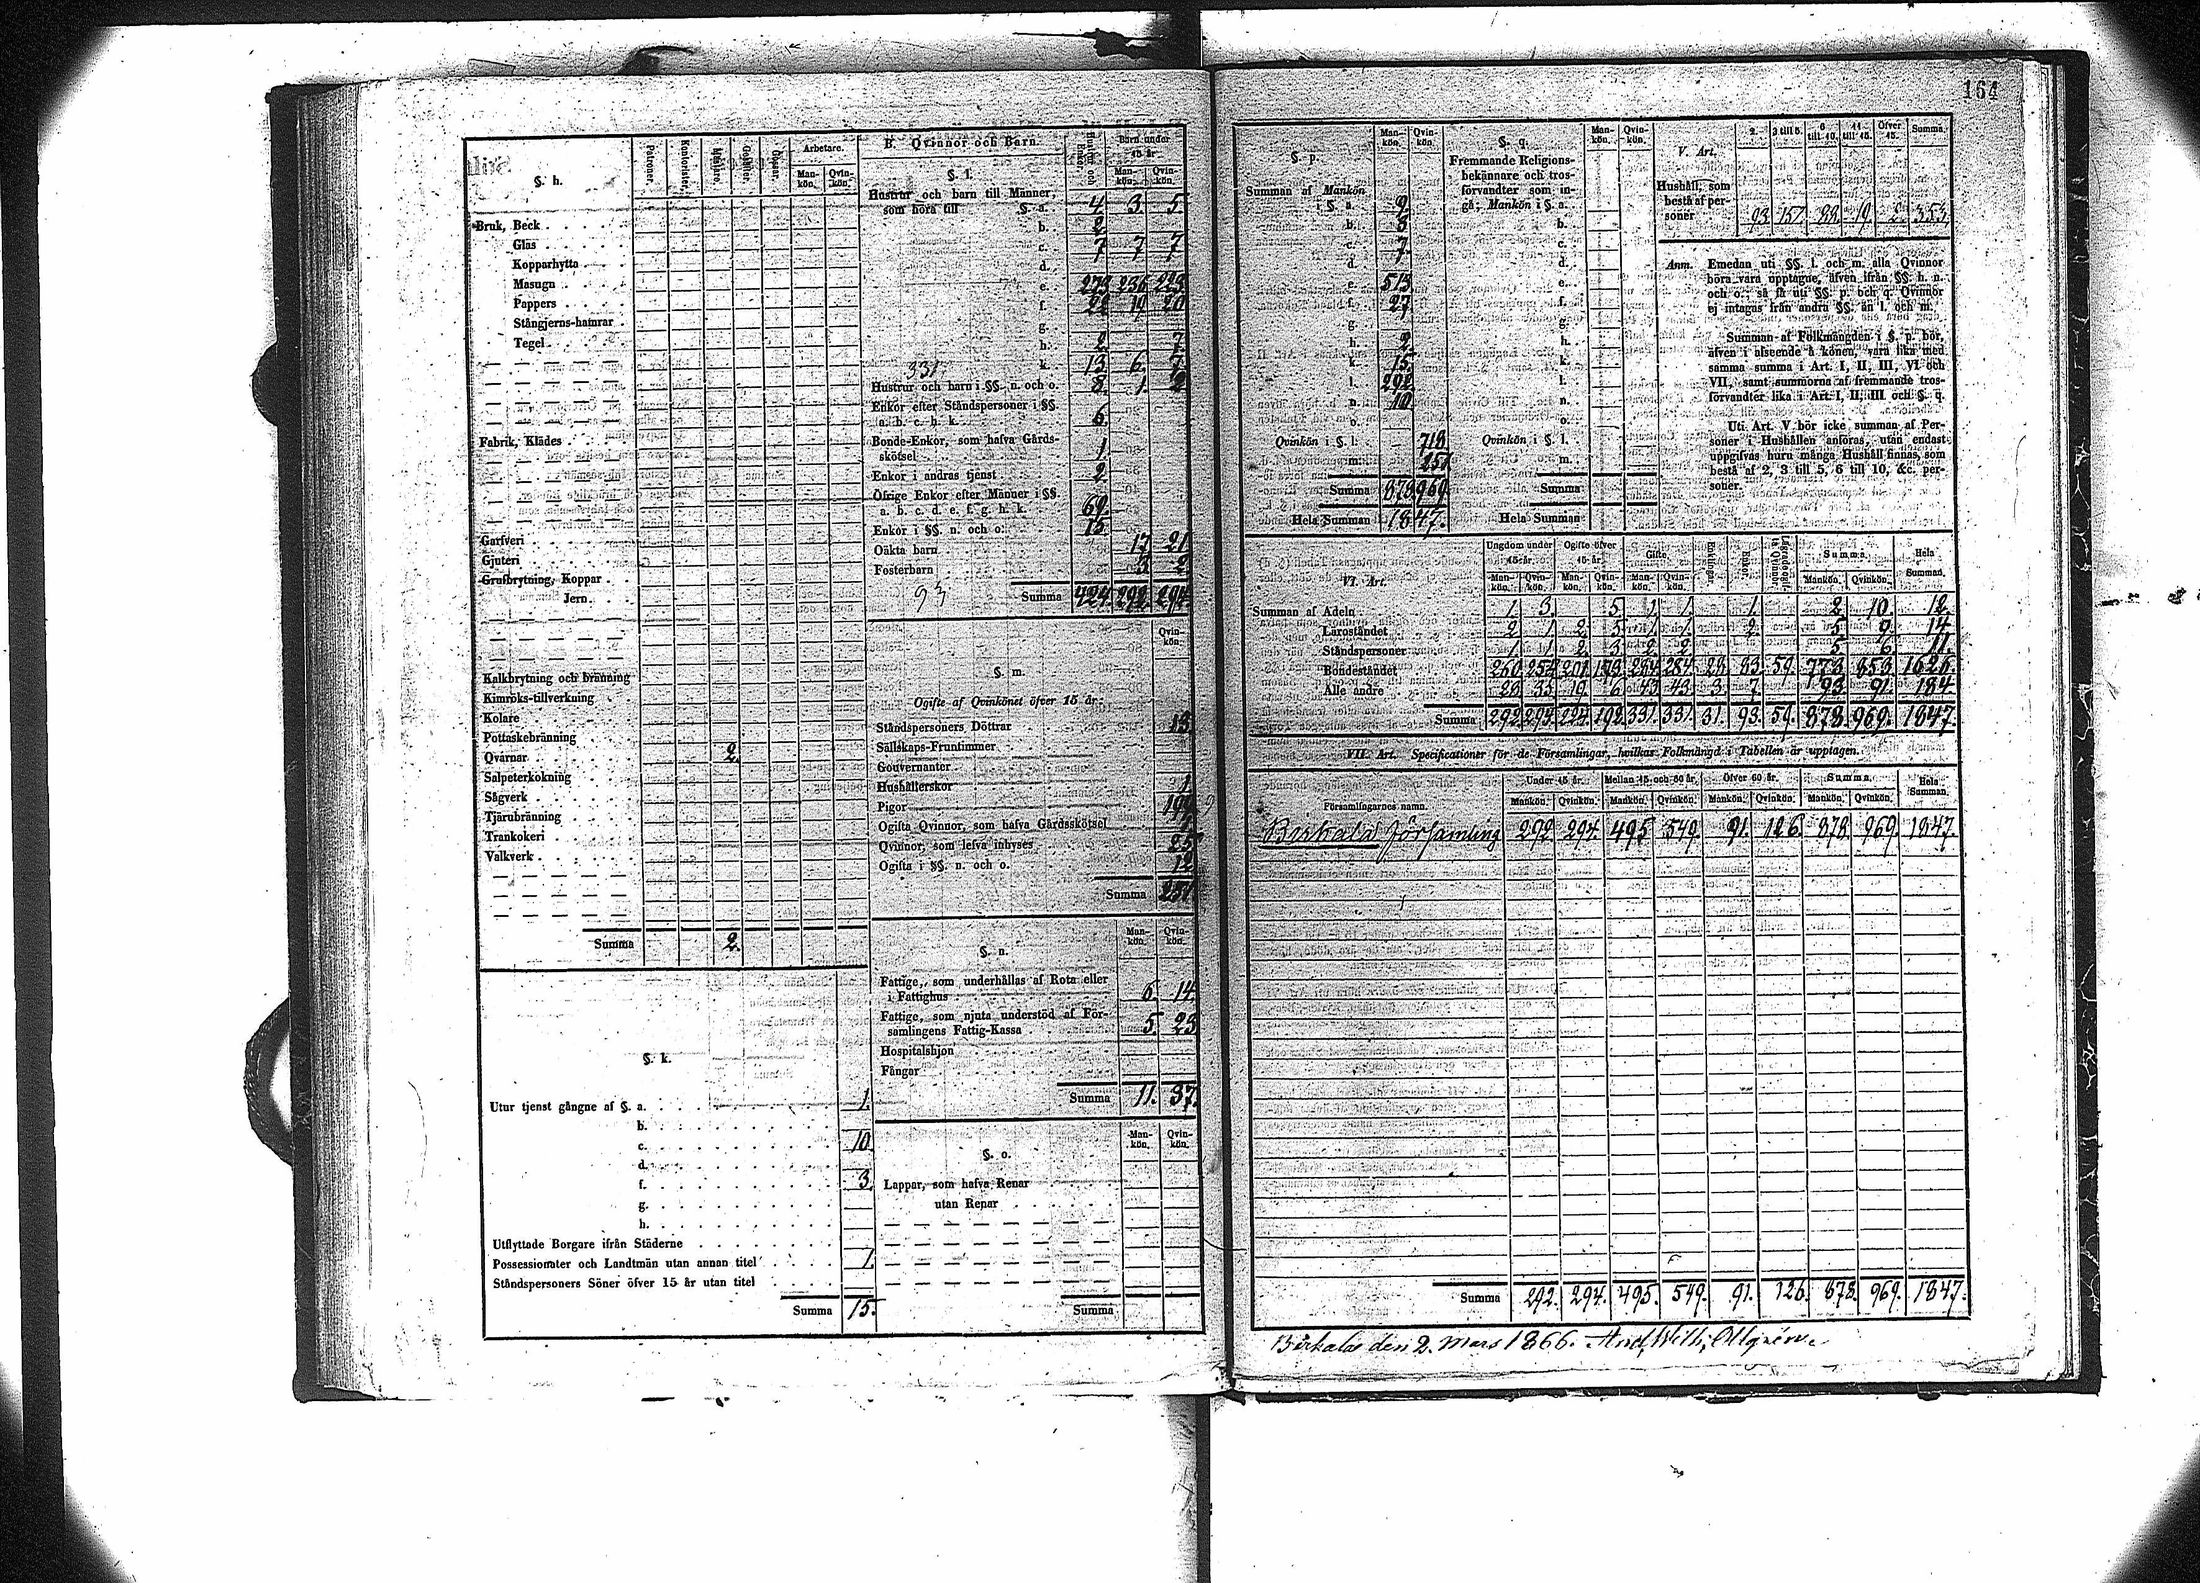 164
§. h.
Patroner.
Kontorister.
Mästare.
Gesäller.
Gossar.
Arbetare.
Mankön. Qvinkön.
Bruk, Beck
Glas
Kopparhytta
Masugn
Pappers
Stångjerns-hamrar
Tegel
Fabrik, Klädes
Garfveri
Gjuteri
Grufbrytning, Koppar
Jern
Kalkbrytning och bränning
Kimröks-tillverkning
Kolare
Pottaskebränning
Qvarnar 2.
Salpeterkokning
Sågverk
Tjärubränning
Trankokeri
Valkverk
Summa 2.
§. k.
Utur tjenst gångne af §. a. 1.
b.
c. 10
d.
f. 3.
g.
h.
Utflyttade Borgare ifrån Städerne
Possessionater och Landtmän utan annan titel 1.
Ståndspersoners Söner öfver 15 år utan titel
Summa 15.
B. Qvinnor och Barn.
Hustrur och Enkor.
Barn under 15 år.
Mankön. Qvinkön.
§. l.
Hustrur och barn till Männer,
som höra till §. a. 4. 3. 5.
b. 2.
c. 7 7 7
d.
e. 273 236 223
f. 22 19 20
g.
h. 2 7
331. k. 13. 6. 7.
Hustrur och barn i §§. n. och o. 8. 1. 2
Enkor efter Ståndspersoner i §§.
a. b. c. h. k. 6.
Bonde-Enkor, som hafva Gårds-
skötsel 1
Enkor i andras tjenst 2
Öfrige Enkor efter Männer i §§.
a. b. c. d. e. f. g. h. k. 69.
Enkor i §§. n. och o. 15.
Oäkta barn 17 21
Fosterbarn 3 2
93 Summa 424. 292. 294.
Qvinkön.
§. m.
Ogifte af Qvinkönet öfver 15 år.
Ståndspersoners Döttrar 13.
Sällskaps-Fruntimmer
Gouvernanter
Hushållerskor 1
Pigor 199
Ogifta Qvinnor, som hafva Gårdsskötsel 1
Qvinnor, som lefva inhyses 25
Ogifta i §§. n. och o. 12
Summa 251
Mankön. Qvinkön.
§. n.
Fattige, som underhållas af Rota eller
i Fattighus 6. 14
Fattige, som njuta understöd af För-
samlingens Fattig-Kassa 5. 23
Hospitalshjon
Fångar
Summa 11. 37.
Mankön. Qvinkön.
§. o.
Lappar, som hafva Renar
utan Renar
Summa
§. p. Mankön. Qvinkön.
Summan af Mankön
i §. a. 9.
b. 3
c. 7.
d.
e. 513
f. 27
g.
h. 2
k. 15.
l. 292
n. 10
o.
Qvinkön i §. l. 718
m. 251
Summa 878 969
Hela Summan 1847.
§. q. Mankön. Qvinkön.
Fremmande Religions-
bekännare och tros-
förvandter som in-
gå; Mankön i §. a.
b.
c.
d.
e.
f.
g.
h.
k.
l.
n.
o.
Qvinkön i §. l.
m.
Summa
Hela Summan
V. Art. 2. 3 till 5. 6 till 10. 11 till 15. Öfver 15. Summa.
Hushåll, som
bestå af per-
soner 93 151. 88. 19. 2 353
Anm. Emedan uti §§. l. och m. alla Qvinnor
böra vara upptagne, äfven ifrån §§. h. n.
och o.; så få uti §§. p. och q. Qvinnor
ej intagas från andra §§. än l. och m.
Summan af Folkmängden i §. p. bör,
äfven i afseende å könen, vara lika med
samma summa i Art. I, II, III, VI och
VII, samt summorna af fremmande tros-
förvandter lika i Art. I, II, III och §. q.
Uti Art. V bör icke summan af Per-
soner i Hushållen anföras, utan endast
uppgifvas huru många Hushåll finnas, som
bestå af 2, 3 till 5, 6 till 10, &c. per-
soner.
VI. Art.
Ungdom under 15 år. Ogifte öfver 15 år. Gifte. Enklingar. Enkor. Summa. Hela Summan.
Mankön. Qvinkön. Mankön. Qvinkön. Mankön. Qvinkön. Mankön. Qvinkön.
Summan af Adeln 1 3. 5. 1. 1. 1. 2 10. 12.
Läroståndet 2 1. 2. 5 1. 1. 2. 5 9. 14
Ståndspersoner 1 1. 2. 3. 2. 2. 5 6. 11.
Bondeståndet 260 254 201 173 284 284 28 83. 59. 773 853 1626
Alle andre 28 35 19. 6 43 43 3. 7. 93 91. 184
Summa 292 294. 224. 192. 331. 331. 31. 93. 59. 878. 969. 1847.
VII. Art. Specificationer för de Församlingar, hvilkas Folkmängd i Tabellen är upptagen.
Församlingarnes namn.
Under 15 år. Mellan 15 och 60 år. Öfver 60 år. Summa. Hela Summan.
Mankön. Qvinkön. Mankön. Qvinkön. Mankön. Qvinkön. Mankön. Qvinkön.
Birkala församling 292 294. 495 549. 91. 126. 878. 969. 1847.
Summa 292. 294. 495. 549. 91. 126. 878. 969. 1847.
Birkala den 2. Mars 1866. And. Wilh.